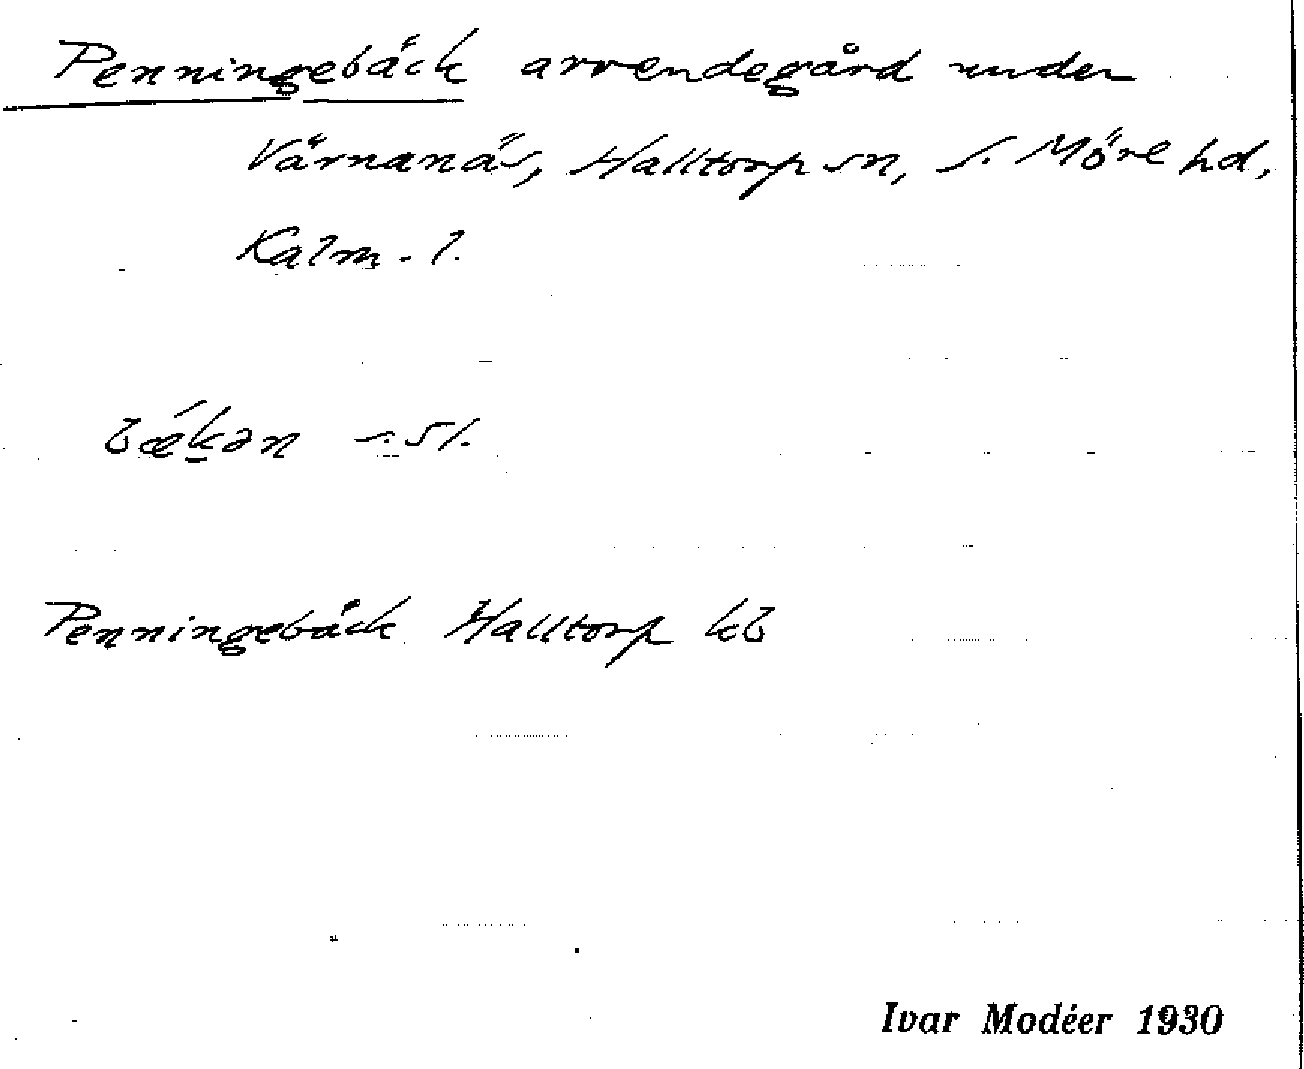 Penningebäck arrendegård under
Värnanäs, Halltorp sn, S. Möre hd,
Kalm. l.
bækən s. sf.
Penningebäck Halltorp kb
Ivar Modéer 1930